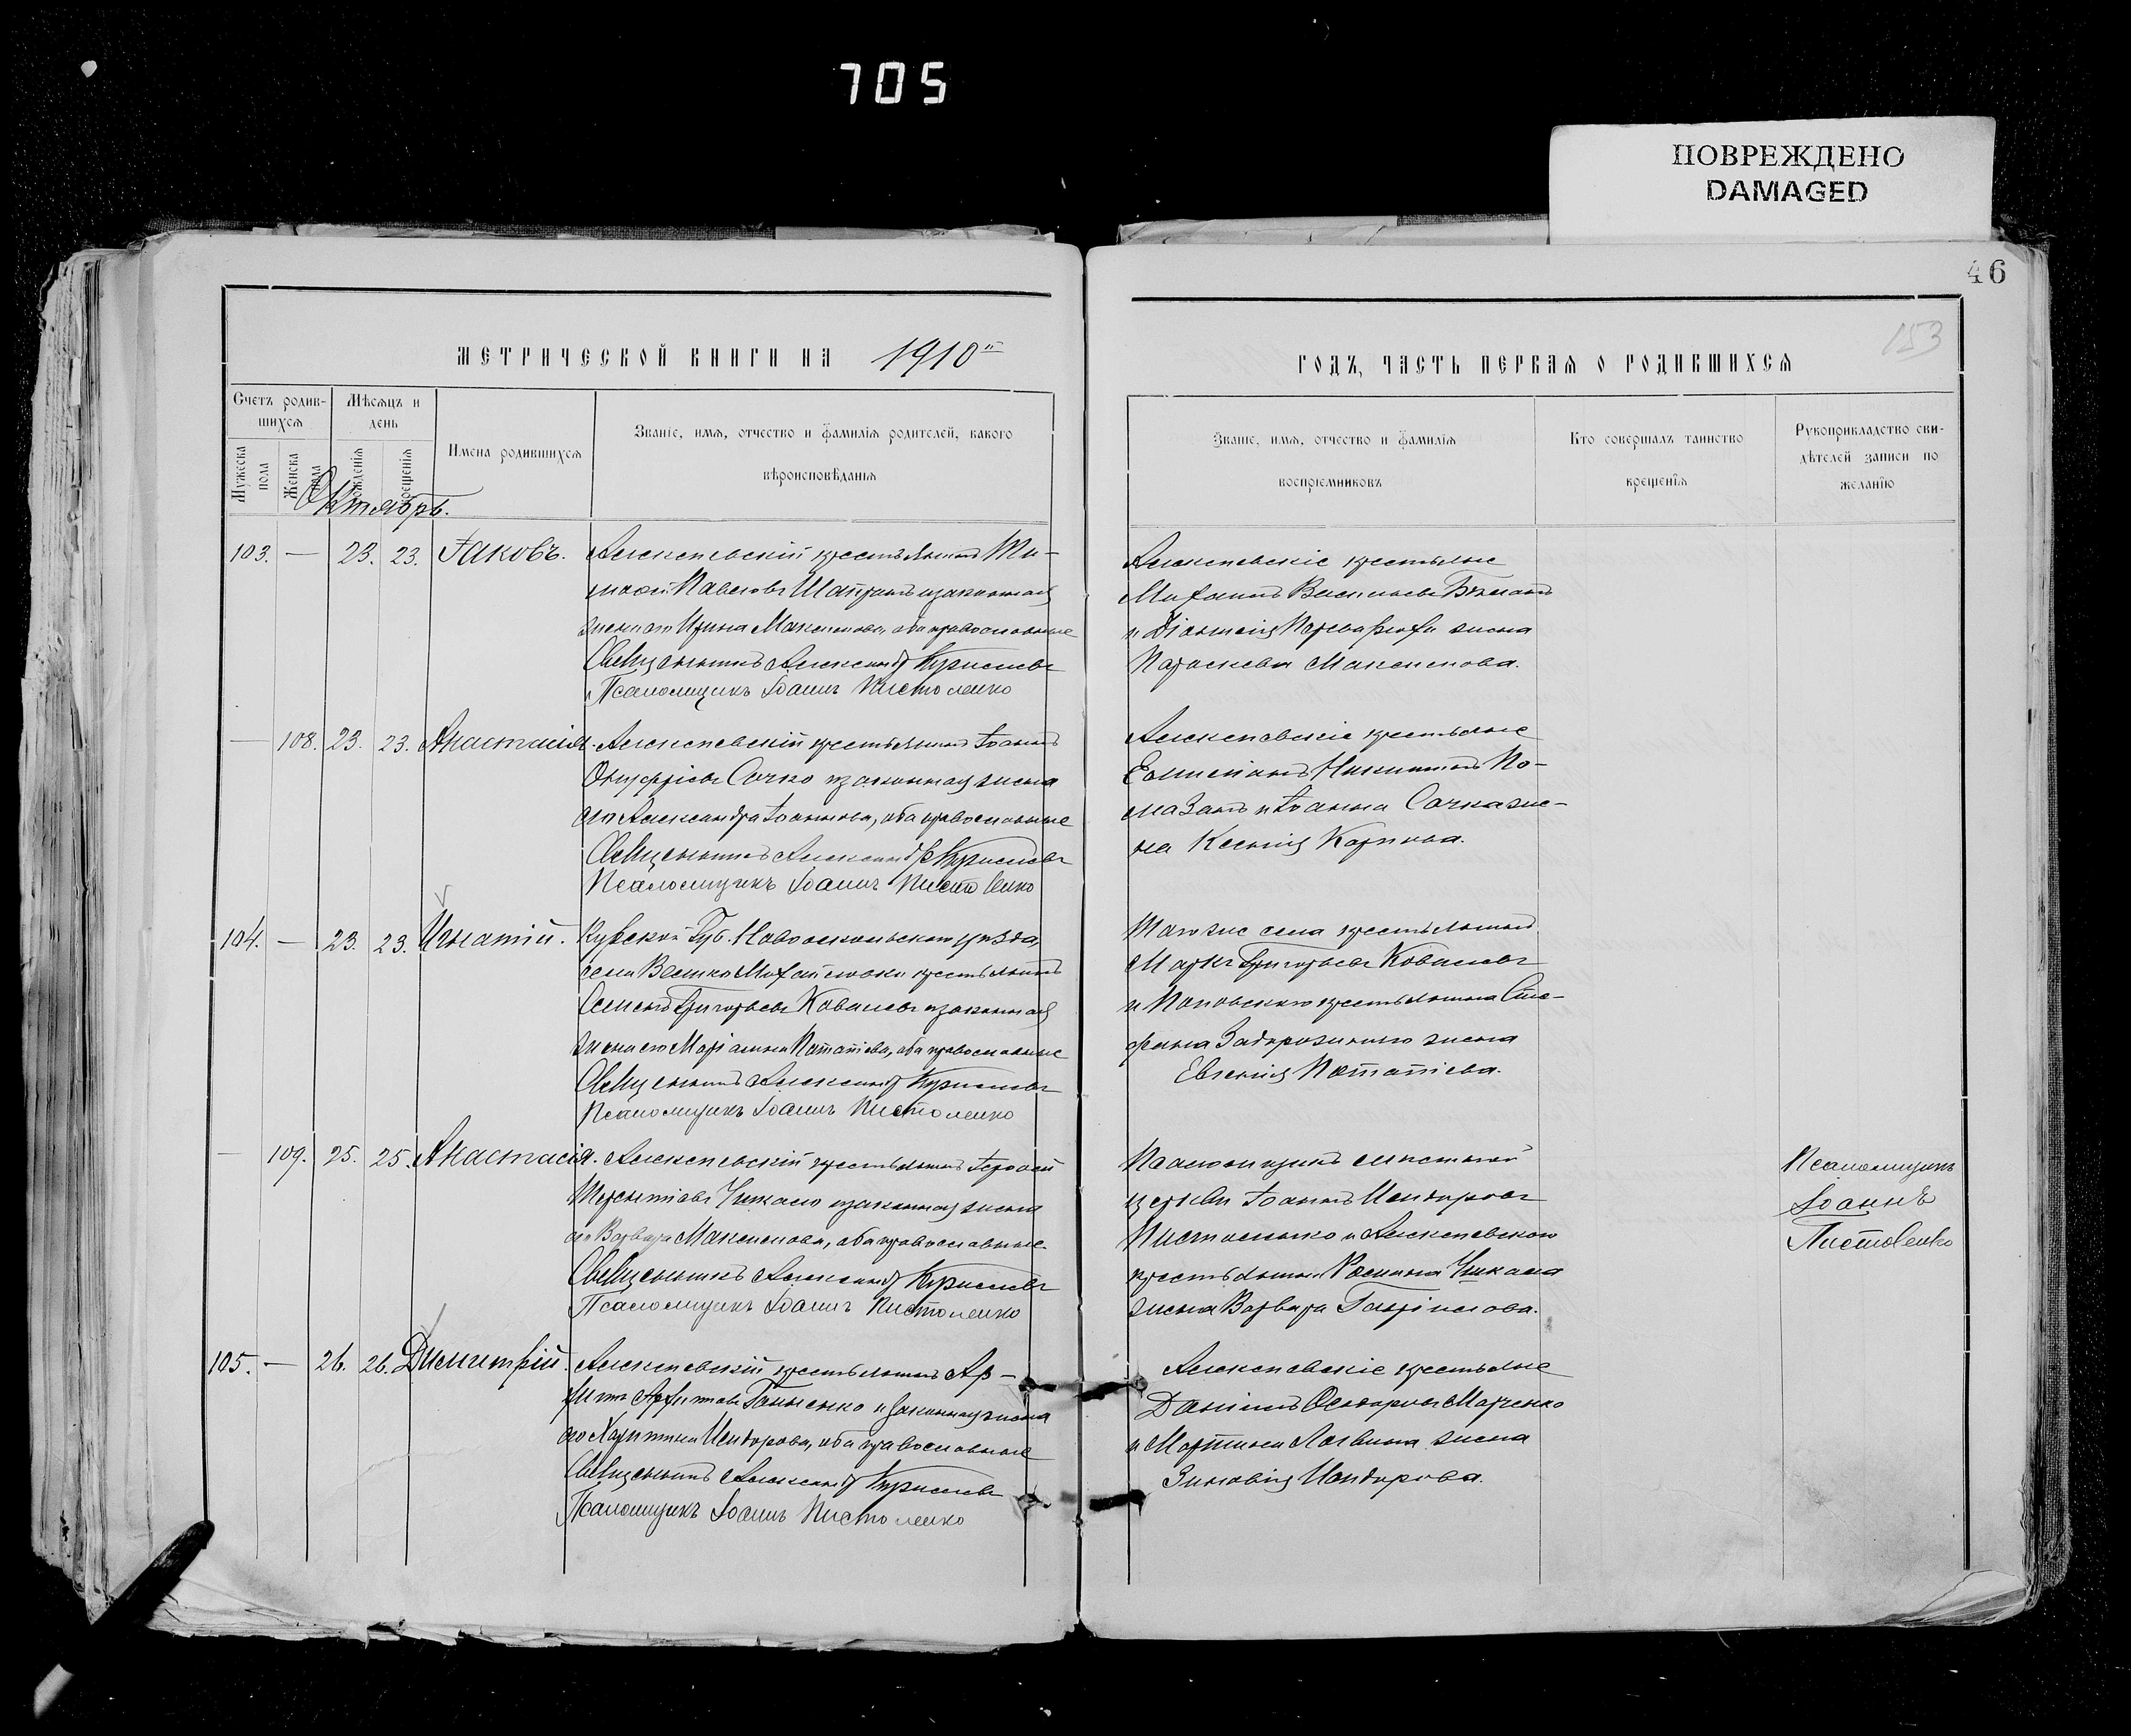 705
ПОВРЕЖДЕНО
DAMAGED
46
153
МЕТРИЧЕСКОЙ КНИГИ НА 1910
ГОДЪ, ЧАСТЬ ПЕРВАЯ О РОДИВШИХСЯ
Счетъ родив-
шихся
Мужеска
пола
Женска
пола
Мѣсяцъ и
день
рожденія
крещенія
Имена родившихся
Званіе, имя, отчество и фамилія родителей, какого
вѣроисповѣданія
Званіе, имя, отчество и фамилія
воспріемниковъ
Кто совершалъ таинство
крещенія
Рукоприкладство сви-
дѣтелей записи по
желанію
Октябрь.
103. — 23. 23. Іаковъ. Алексѣевскій крестьянинъ Ти-
моѳей Павловъ и законная
жена его Ирина Максимова, оба православные
Священникъ Александр
Псаломщикъ Іоаннъ Пистоленко
Алексѣевскіе крестьяне
Михаилъ Васильевъ
и жена
Параскева Максимова.
— 108. 23. 23. Анастасія. Алексѣевскій крестьянинъ Іоаннъ
Онуфріевъ Сочко и законная жена
его Александра Іоаннова, оба православные
Священникъ Александр
Псаломщикъ Іоаннъ Пистоленко
Алексѣевскіе крестьяне
Емиліанъ Никитинъ По-
мазанъ и Іоанна Сочка же-
на Ксенія Карпова.
104. — 23. 23. Игнатій. Курской Губ. Новооскольскаго уѣзда,
села Велико Михайловки крестьянинъ
Семенъ Григорьевъ Ковалевъ и законная
жена его Маріамна Потапіева, оба православные
Священникъ Александр
Псаломщикъ Іоаннъ Пистоленко
Того же села крестьянинъ
Маркъ Григорьевъ Ковалевъ
и Поповскаго крестьянина Сте-
фана Задорожнаго жена
Евгенія Потапіева.
— 109. 25. 25. Анастасія. Алексѣевскій крестьянинъ Іероѳей
Терентіевъ Чикало и законная жена
его Варвара Максимова, оба православные.
Священникъ Александр
Псаломщикъ Іоаннъ Пистоленко
Псаломщикъ мѣстной
церкви Іоаннъ Исидоровъ
Пистоленко и Алексѣевскаго
крестьянина Чикала
жена Варвара Гавріилова.
Псаломщикъ
Іоаннъ
Пистоленко
105. — 26. 26. Димитрій. Алексѣевскій крестьянинъ
и законная жена
его Харитина Исидорова, оба православные
Священникъ Александр
Псаломщикъ Іоаннъ Пистоленко
Алексѣевскіе крестьяне
Даніилъ Ѳеодоровъ Марченко
и Мартина Логвина жена
Зиновія Исидорова.